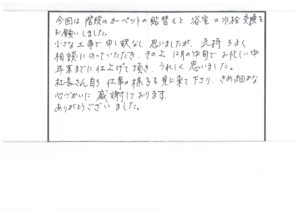 今回は階段のカーペットの貼替えと浴室の水栓交換を
お願いしました。
小さな工事で申し訳なく思いましたが、気持ちよく
相談にのっていただき、その上12月の中旬でお忙しい中
年末までに仕上げて頂き、うれしく思いました。
社長さん自ら仕事の様子を見に来て下さり、きめ細かな
心づかいに感謝しております。
ありがとうございました。